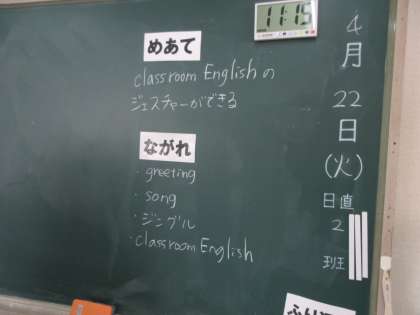 めあて
classroom Englishの
ジェスチャーができる
ながれ
・greeting
・song
・ジングル
・classroom English
11:15
4
月
22
日
(火)
日直
2
班